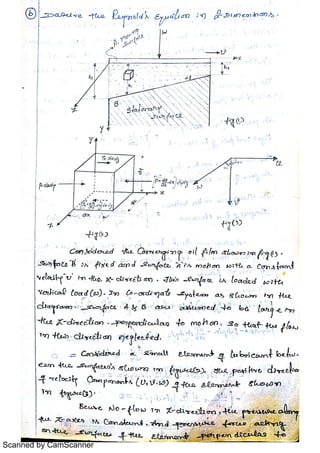 (b) Derive the Reynold's Equation in 2-Dimensions.
A, Moving surface
W
U
x
h₁
h₂
B
Stationary surface
z
y
fig(1)
y
x
z
dx
fig(2)
U
W
V
fig(3)
Considered the Converging oil film shown in fig(1).
Surface 'B' is fixed and Surface 'A' is motion with a Constant
velocity 'U' in the X- direction. This Surface is loaded with
vertical load (W). In Co-ordinate System as shown in the
diagram. Surface A & B are assumed to be large in
the Z-direction - perpendicular to motion, so that the flow
in this direction neglected.
= Considered a Small element of lubricant betw-
een the surfaces shown in figure(2). the positive direction
of velocity Components (U, V, W) of the element shown
in figure(3).
No-flow in Z-direction, the pressure along
the Z-axis is Constant. And pressure forces acting
on the surfaces of the element perpendicular to
Scanned by CamScanner